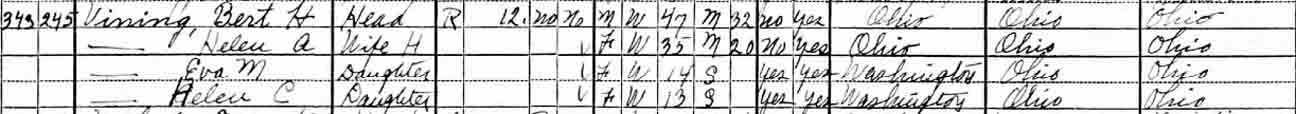 343 245 Vining, Bert H Head R 12. No No M W 47 M 32 no yes Ohio Ohio Ohio
— Helen A Wife H F W 35 M 20 No Yes Ohio Ohio Ohio
— Eva M Daughter F W 14 S yes yes Washington Ohio Ohio
— Helen C Daughter F W 13 S yes yes Washington Ohio Ohio